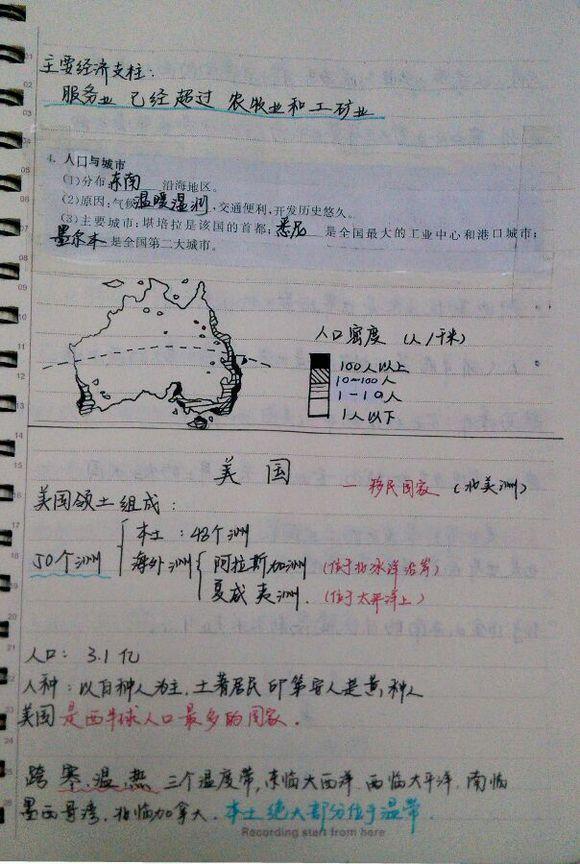 主要经济支柱：
服务业 已经超过 农牧业和工矿业
4. 人口与城市
(1)分布：东南 沿海地区。
(2)原因：气候温暖湿润，交通便利，开发历史悠久。
(3)主要城市：堪培拉是该国的首都；悉尼 是全国最大的工业中心和港口城市；
墨尔本是全国第二大城市。
人口密度 (人/千米)
100人以上
10—100人
1—10人
1人以下
美 国 — 移民国家 (北美洲)
美国领土组成：
本土：48个洲
50个洲 海外洲 阿拉斯加洲 (位于北冰洋沿岸)
夏威夷洲. (位于太平洋上)
人口： 3.1亿
人种：以白种人为主，土著居民印第安人是黄种人
美国是西半球人口最多的国家.
跨 寒、温、热 三个温度带，东临大西洋 西临大平洋 南临
墨西哥湾，北临加拿大. 本土绝大部分位于温带.
Recording start from here